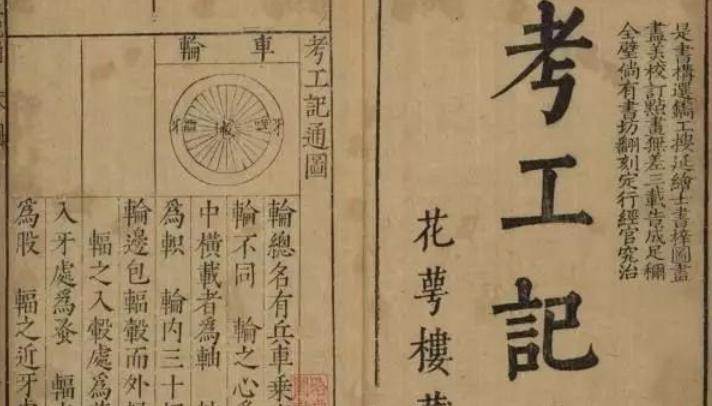 是書構選鐫工搜延繪士書梓圖畫
盡美校訂點畫無差三載告成足稱
全璧倘有書坊翻刻定行經官究治
考工記
花萼樓
考工記通圖
車輪
牙
牙
輪總名有兵車乘
輪不同 輪之心
中橫載者為軸
為軹 輪內三十
輪邊包輻轂而外
輻之入轂處為
入牙處為蚤 輻
為股 輻之近牙